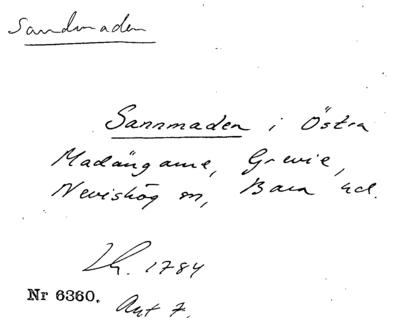 Sandmaden
Sannmaden i Östra
Madängarne, Grevie,
Nevishög sn, Bara hd.
Lh. 1784
Nr 6360. Akt 7.